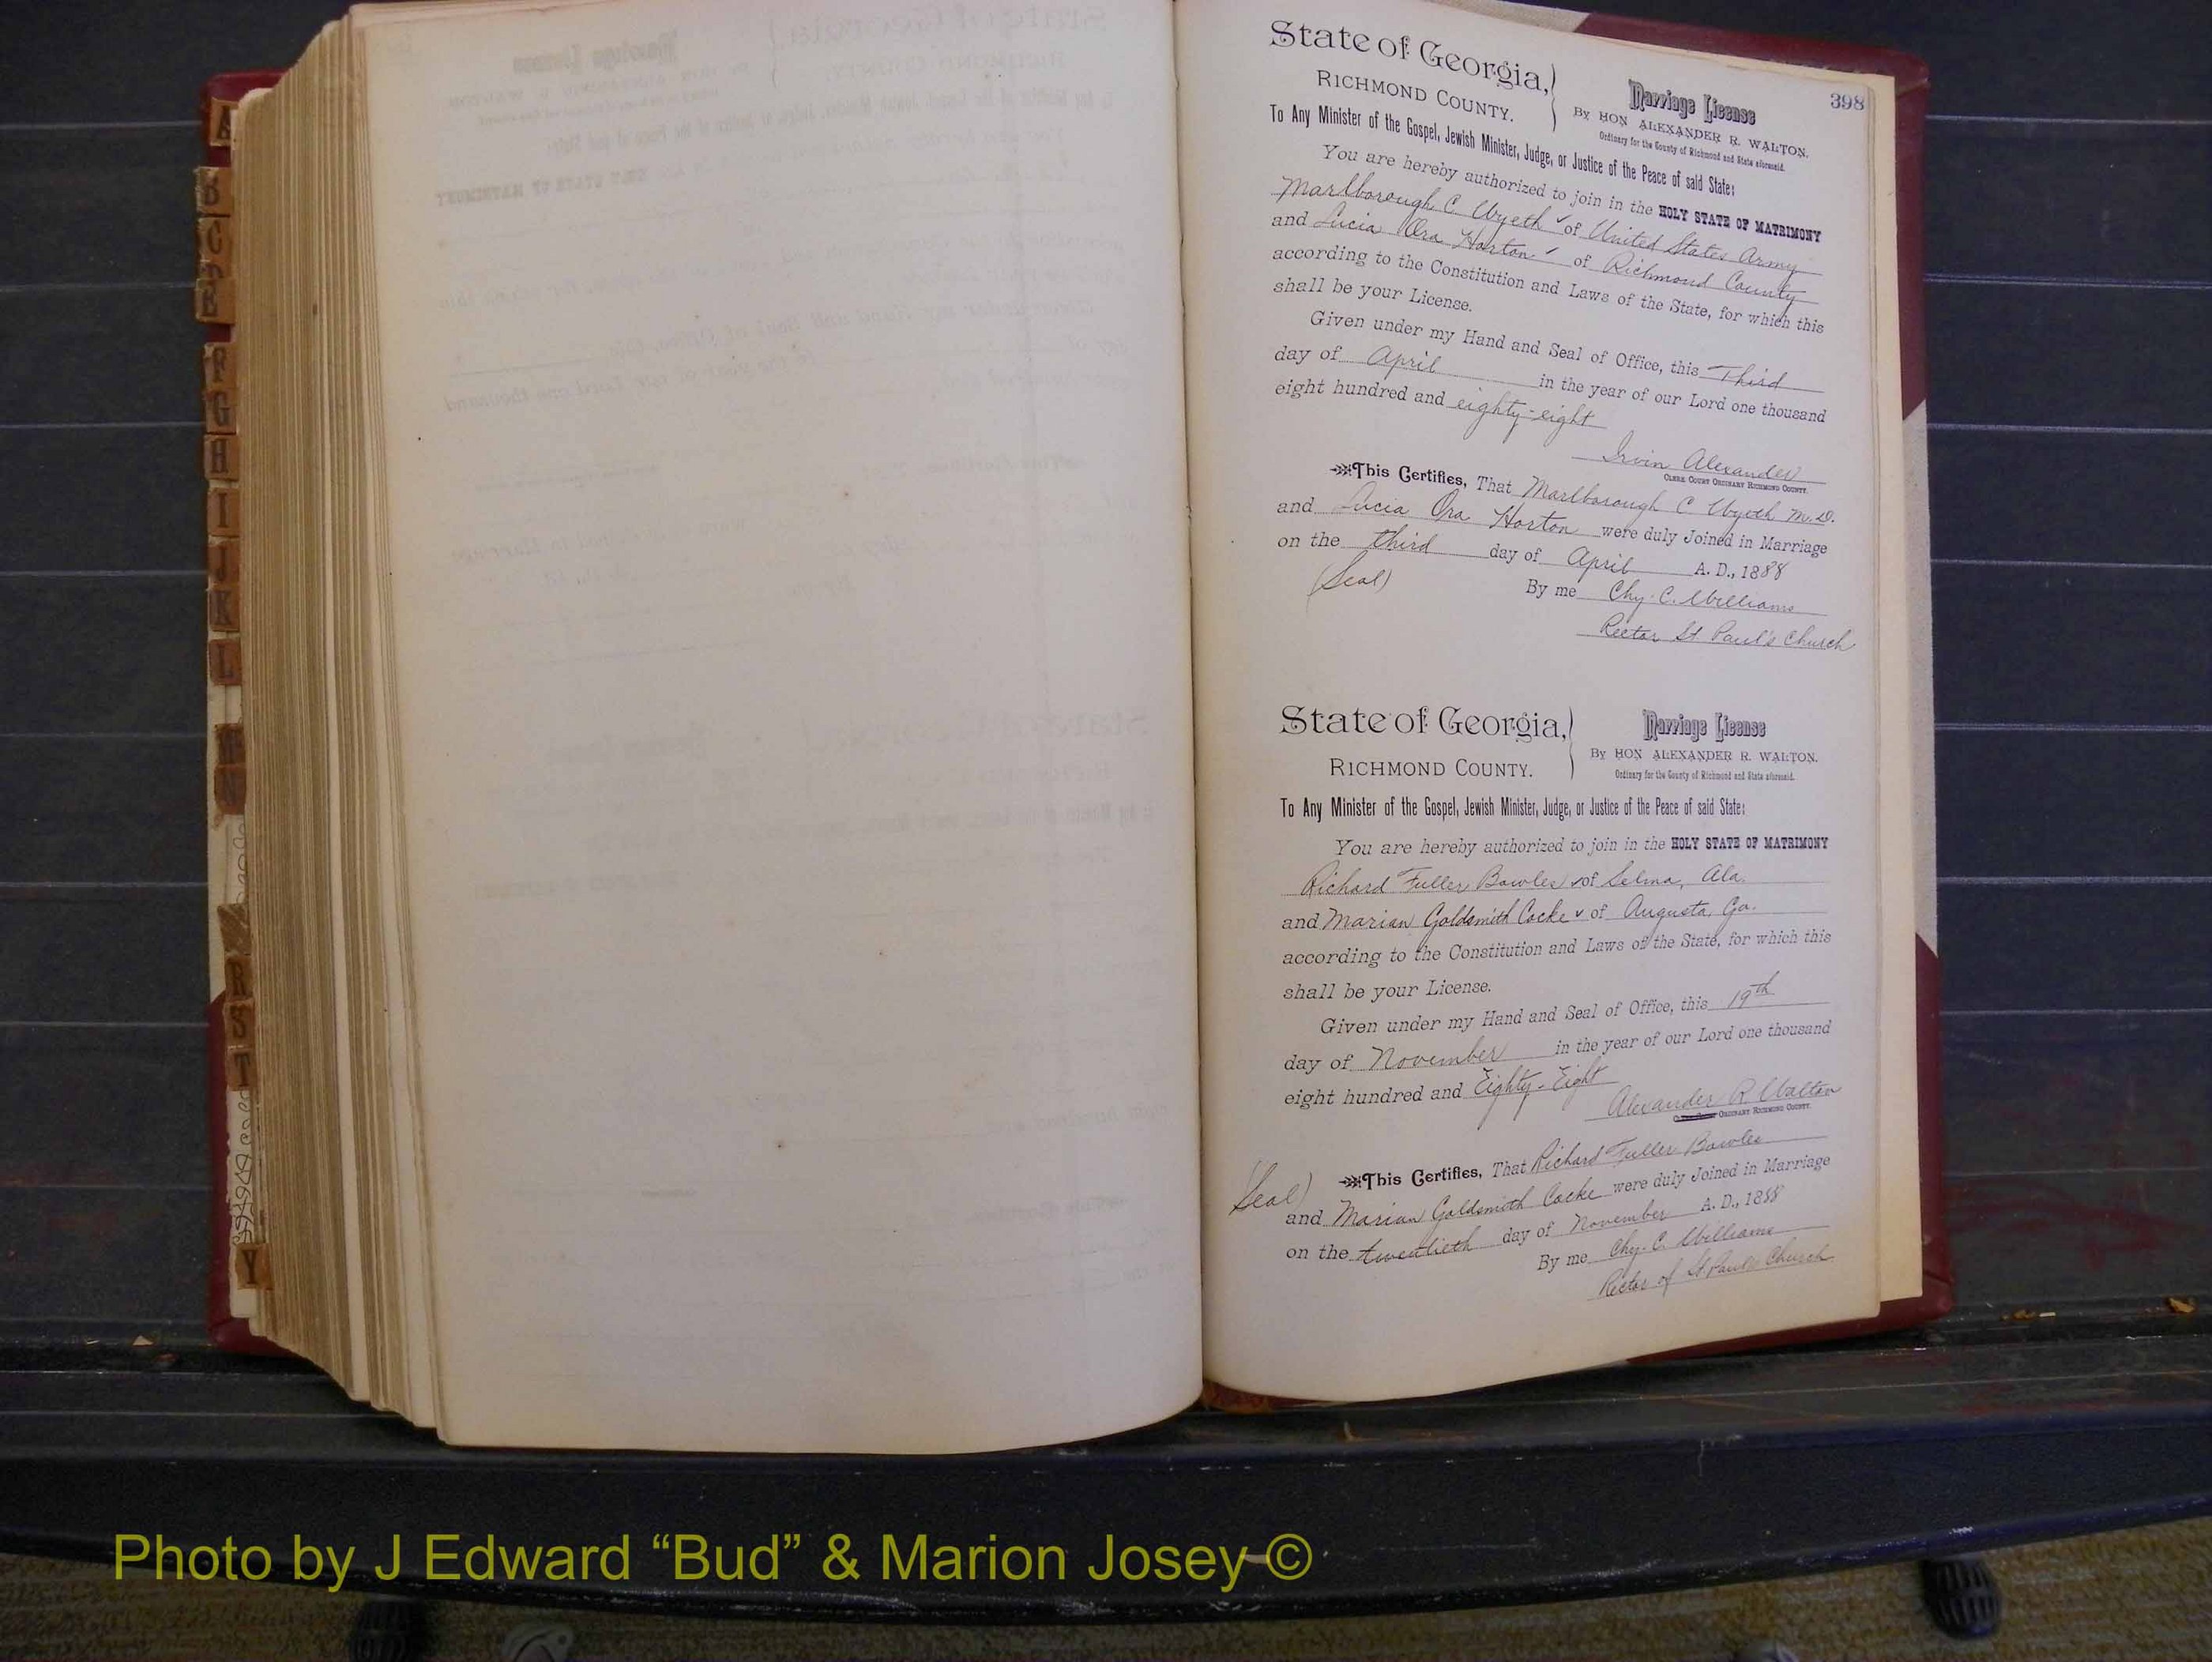 B
C
E
F
G
H
I
J
K
L
N
R
S
T
Y
398
State of Georgia,
RICHMOND COUNTY.
Marriage License
By HON ALEXANDER R. WALTON.
Ordinary for the County of Richmond and State aforesaid.
To Any Minister of the Gospel, Jewish Minister, Judge, or Justice of the Peace of said State:
You are hereby authorized to join in the HOLY STATE OF MATRIMONY
Marlborough C Wyeth of United States Army
and Lucia Ora Horton of Richmond County
according to the Constitution and Laws of the State, for which this
shall be your License.
Given under my Hand and Seal of Office, this Third
day of April in the year of our Lord one thousand
eight hundred and eighty-eight
Irvin Alexander
CLERK COURT ORDINARY RICHMOND COUNTY.
This Certifies, That Marlborough C Wyeth M.D.
and Lucia Ora Horton were duly Joined in Marriage
on the third day of April A. D., 1888
(Seal)
By me Chy. C. Williams
Rector St Paul's Church
State of Georgia,
RICHMOND COUNTY.
Marriage License
By HON ALEXANDER R. WALTON.
Ordinary for the County of Richmond and State aforesaid.
To Any Minister of the Gospel, Jewish Minister, Judge, or Justice of the Peace of said State:
You are hereby authorized to join in the HOLY STATE OF MATRIMONY
Richard Fuller Bowles of Selma, Ala.
and Marian Goldsmith Cocke of Augusta, Ga.
according to the Constitution and Laws of the State, for which this
shall be your License.
Given under my Hand and Seal of Office, this 19th
day of November in the year of our Lord one thousand
eight hundred and Eighty-Eight
Alexander R. Walton
ORDINARY RICHMOND COUNTY.
(Seal)
This Certifies, That Richard Fuller Bowles
and Marian Goldsmith Cocke were duly Joined in Marriage
on the twentieth day of November A. D., 1888
By me Chy. C. Williams
Rector of St Paul's Church
Photo by J Edward “Bud” & Marion Josey ©